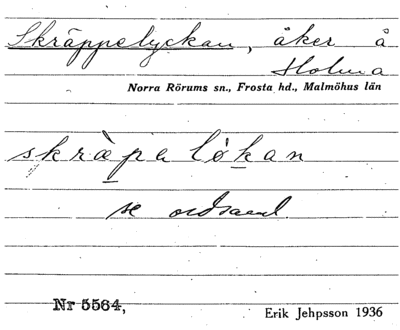 Skräppelyckan, åker å
Holma
Norra Rörums sn., Frosta hd., Malmöhus län
skràpa løkan
se ordsaml.
Nr 5564,
Erik Jehpsson 1936